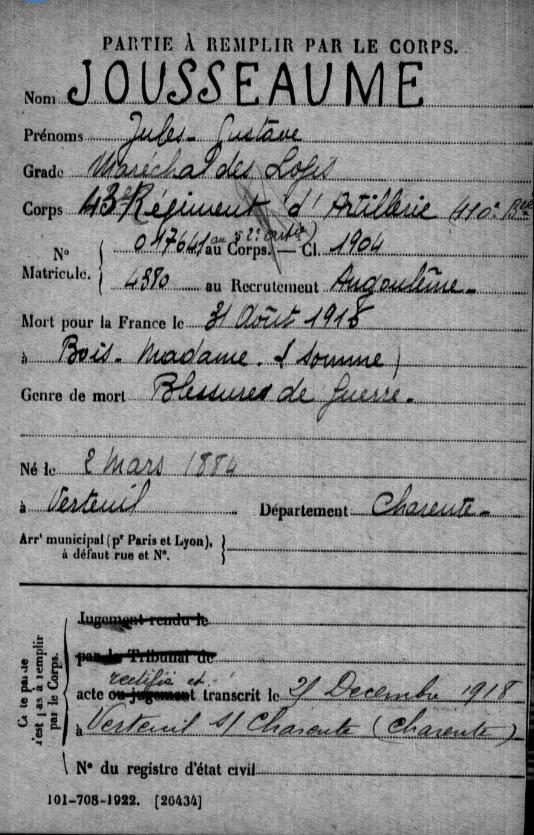 PARTIE À REMPLIR PAR LE CORPS.
Nom JOUSSEAUME
Prénoms Jules - Gustave
Grade Maréchal des Logis
Corps 43e Régiment d'Artillerie (110e Bie)
N° Matricule. 017641 au Corps. — Cl. 1904
au 52e Artie)
4380 au Recrutement Angoulême -
Mort pour la France le 31 Août 1918
à Bois - Madame - (Somme)
Genre de mort Blessures de Guerre -
Né le 2 Mars 1884
à Verteuil Département Charente -
Arrt municipal (pr Paris et Lyon), à défaut rue et N°.
Cette partie n'est pas à remplir par le Corps.
Jugement rendu le
par le Tribunal de
rectifié et
acte ou jugement transcrit le 21 Decembre 1918
à Verteuil s/ Charente (Charente)
N° du registre d'état civil
101-708-1922. [26434]